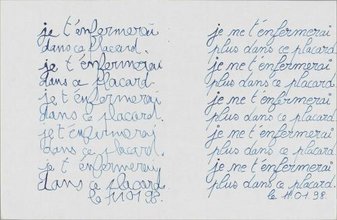 je t'énfermerai
dans ce placard.
je t'énfermerai
dans ce placard.
je t'énfermerai
dans ce placard.
je t'énfermerai
dans ce placard.
je t'énfermerai
dans ce placard.
le 11 01 98.
je me t'énfermerai
plus dans ce placard
je me t'énfermerai
plus dans ce placard.
je me t'énfermerai
plus dans ce placard.
je me t'énfermerai
plus dans ce placard.
je me t'énfermerai
plus dans ce placard.
le 11.01.98.